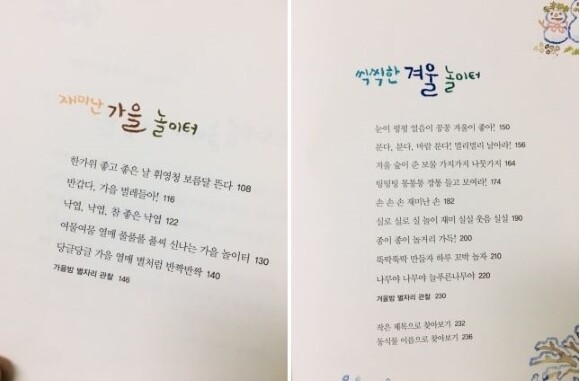 재미난 가을 놀이터
한가위 좋고 좋은 날 휘영청 보름달 뜬다 108
반갑다, 가을 벌레들아! 116
낙엽, 낙엽, 참 좋은 낙엽 122
여물여물 열매 풀풀풀 풀씨 신나는 가을 놀이터 130
당글당글 가을 열매 별처럼 반짝반짝 140
가을밤 별자리 관찰 146
씩씩한 겨울 놀이터
눈이 펑펑 얼음이 꽁꽁 겨울이 좋아! 150
분다, 분다, 바람 분다! 멀리멀리 날아라! 156
겨울 숲이 준 보물 가지가지 나뭇가지 164
팅팅팅 통통통 깡통 들고 모여라! 174
손 손 손 재미난 손 182
실로 실로 실 놀이 재미 실실 웃음 실실 190
종이 종이 놀거리 가득! 200
뚝딱뚝딱 만들자 하루 꼬박 놀자 210
나무야 나무야 늘푸른나무야 220
겨울밤 별자리 관찰 230
작은 제목으로 찾아보기 232
동식물 이름으로 찾아보기 236